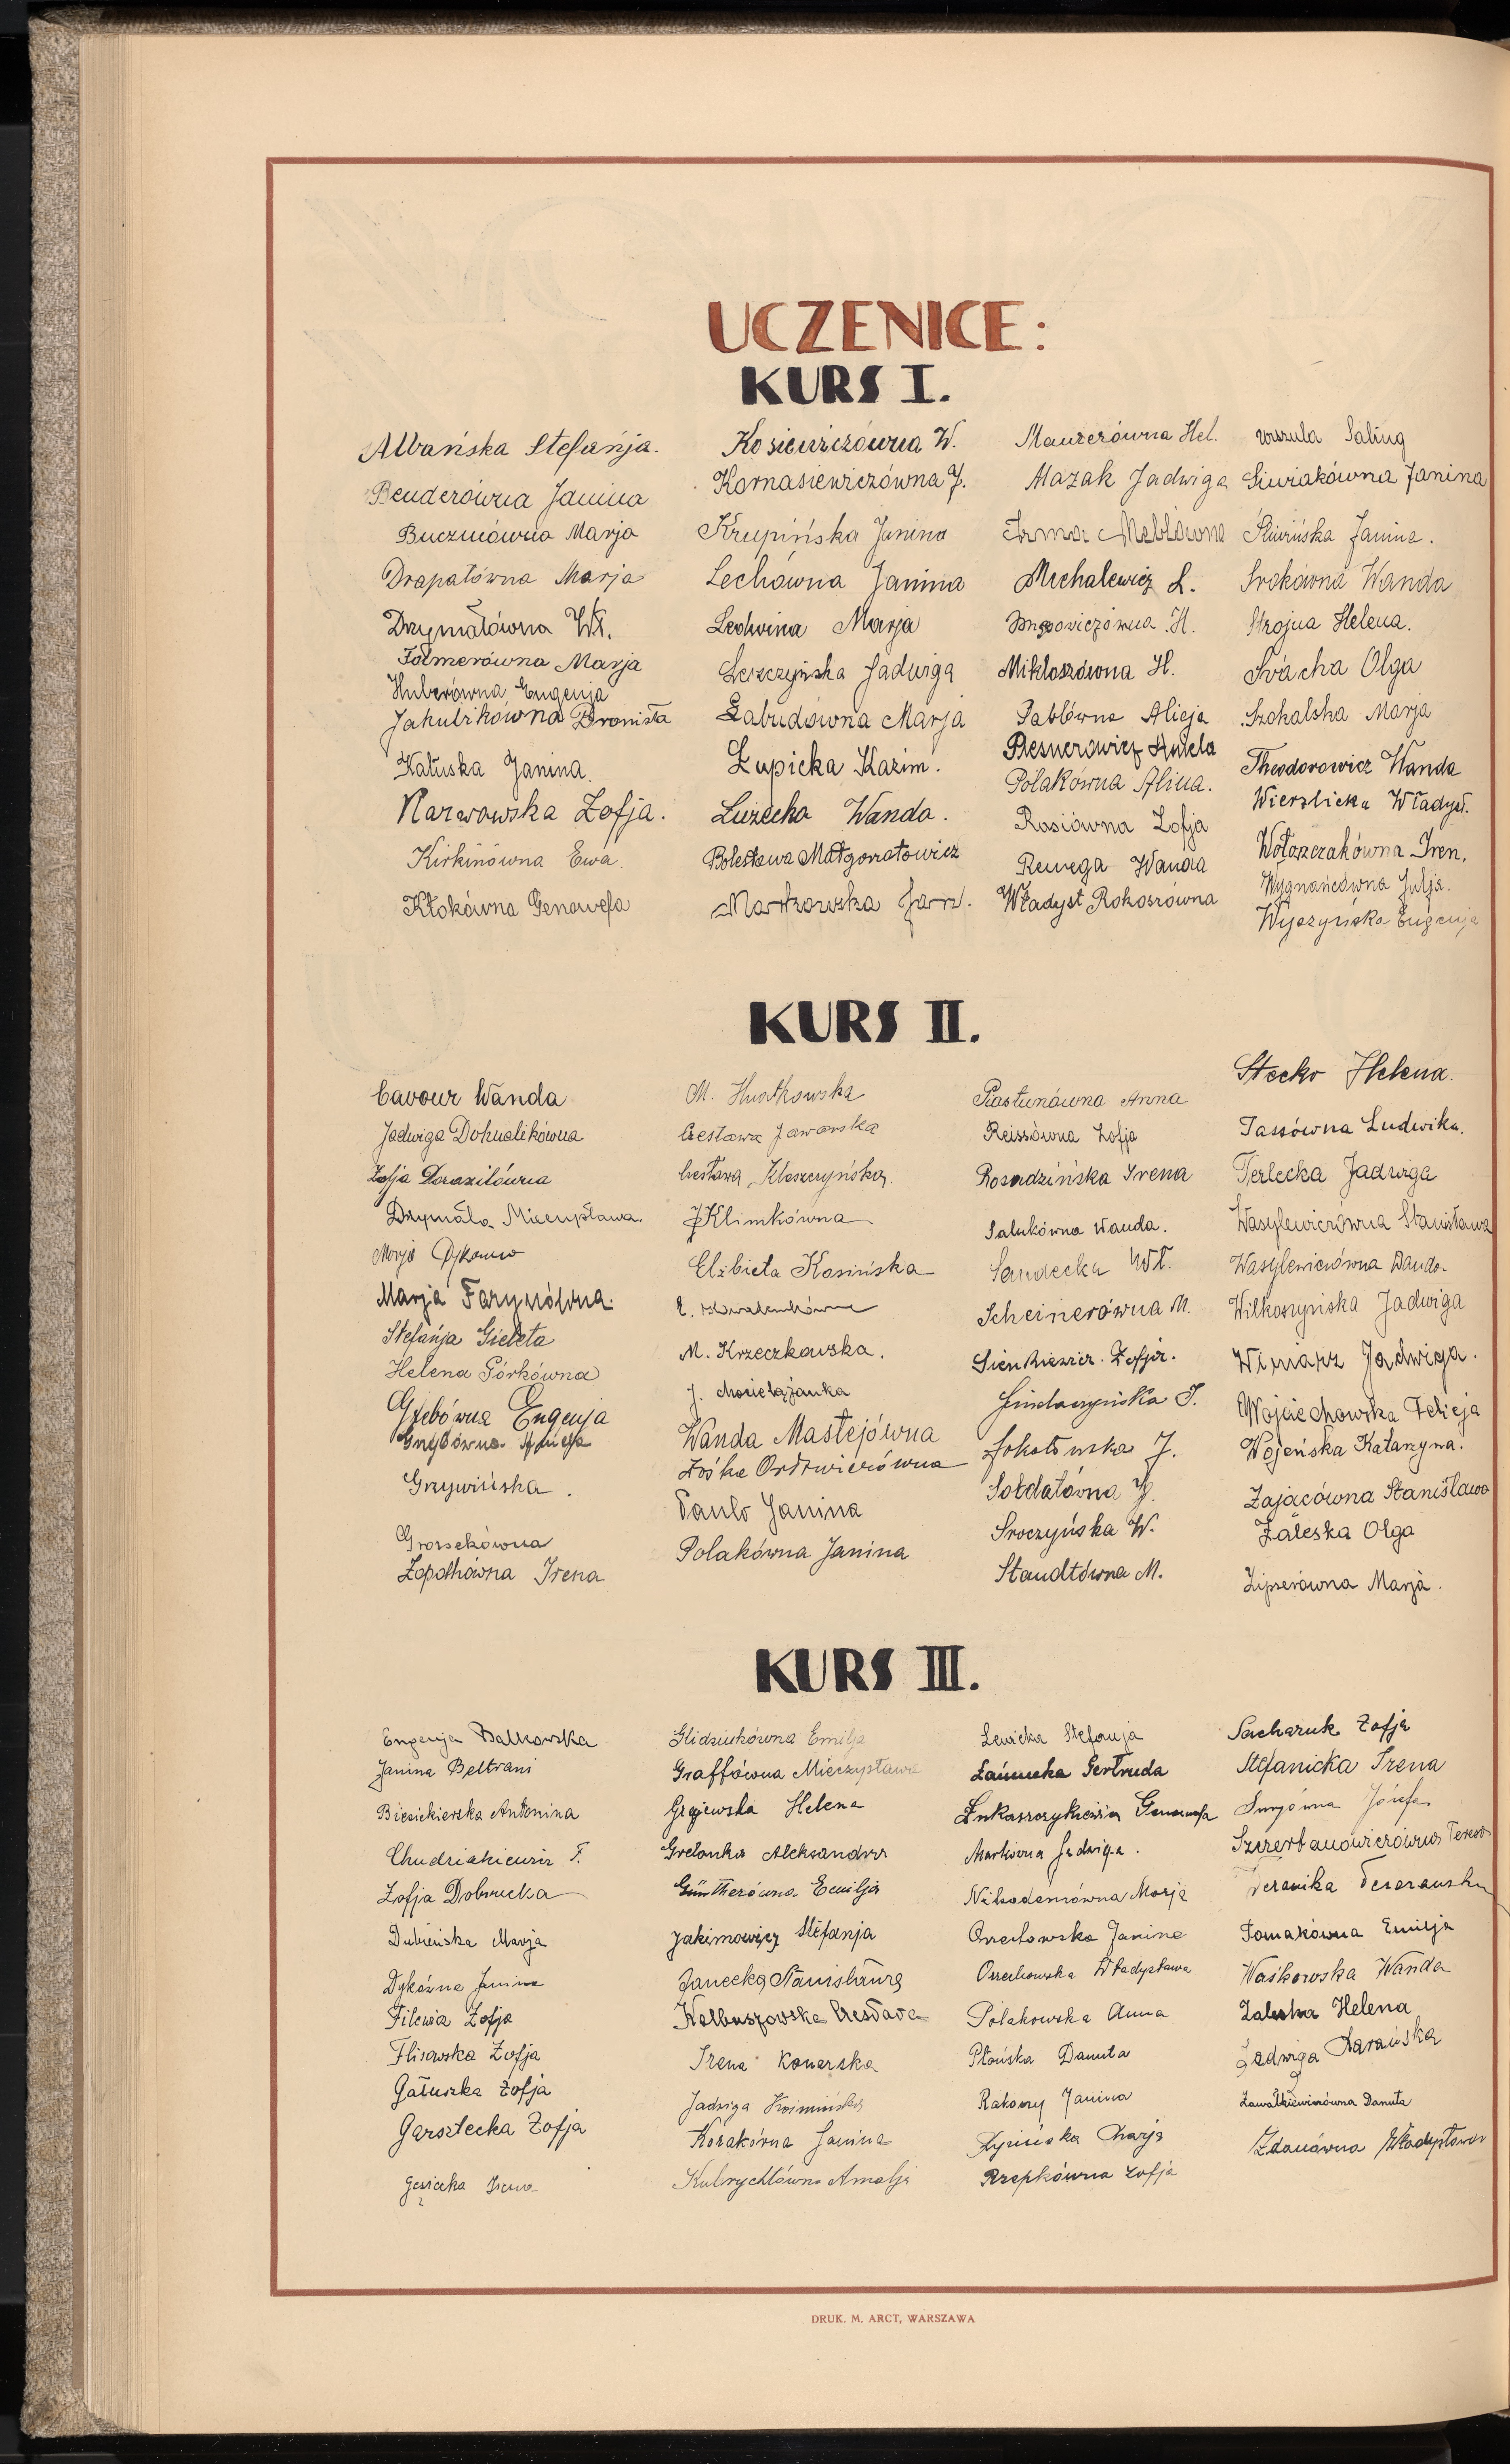 UCZENICE:
KURS I.
Albańska Stefanja.
Benderówna Janina
Buczmówna Marja
Drapałówna Marja
Drzymałówna Wł.
Folmerówna Marja
Huberówna Eugenja
Jakubikówna Bronisła
Kałuska Janina.
Karwowska Zofja.
Kirkinówna Ewa.
Kłokówna Genowefa
Kosiewiczówna W.
Kornasiewiczówna J.
Krupińska Janina
Lechówna Janina
Ledwina Marja
Leszczyńska Jadwiga
Łabudówna Marja
Łupicka Kazim.
Łużecka Wanda.
Bolesława Małgorzatowicz
Markowska Jan.
Maurerówna Hel.
Mazak Jadwiga
Irma Meblówna
Michalewicz L.
H.
Mikloszówna H.
Pablówna Alicja
Plesnerowicz Aniela
Polakówna Alina.
Rosiówna Zofja
Remega Wanda
Władysł Rokoszówna
Urszula Saling
Siwiakówna Janina
Śliwińska Janina.
Srokówna Wanda
Strojna Helena.
Swacha Olga
Szokalska Marja
Theodorowicz Wanda
Wierzbicka Władysł.
Wołoszczakówna Iren.
Wygnańcówna Julja.
Wyszyńska Eugenja
KURS II.
Cavour Wanda
Jadwiga Dohnalikówna
Zofja Doraxilówna
Drzymała Mieczysława.
Marja
Marja Farynówna.
Stefanja Gieleta
Helena Górkówna
Grzebówna Eugenja
Grzybówna Aniela
Grzywińska.
Grossekówna
Zopothówna Irena
M. Hutkowska
Czesława Jaworska
Czesława Kleszczyńska.
J Klimkówna
Elżbieta Kosińska
E.
M. Krzeczkowska.
J. Macielążanka
Wanda Mastejówna
Zośka Ordzwierówna
Paulo Janina
Polakówna Janina
Piastunówna Anna
Reissówna Zofja
Rosadzińska Irena
Salukówna Wanda.
Sandecka Wł.
Scheinerówna M.
Sienkiewicz. Zofja.
J.
Sokołowska J.
Sołdatówna J.
Sroczyńska W.
Staudtówna M.
Stecko Helena.
Tassówna Ludwika.
Terlecka Jadwiga
Wasylewiczówna Stanisława
Wasylewiczówna Danuta
Wilkoszyńska Jadwiga
Winiarz Jadwiga.
Wojciechowska Felicja
Wojeńska Katarzyna.
Zającówna Stanisława
Zaleska Olga
Zipserówna Marja.
KURS III.
Eugenja Balkowska
Janina Beltrani
Biesiekierska Antonina
Chudziakiewicz F.
Zofja Dobrucka
Dubieńska Marja
Dykówna Janina
Filewicz Zofja
Flisowska Zofja
Gałuszka Zofja
Garsztecka Zofja
Gęsicka Irena
Glidziukówna Emilja
Graffówna Mieczysława
Grajewska Helena
Grelonka Aleksandra
Güntherówna Emilja
Jakimowicz Stefanja
Janecka Stanisława
Kolbuszowska Czesława
Irena Konarska
Jadwiga Koźmińska
Kozakówna Janina
Kubrychtówna Amalja
Lewicka Stefanja
Łańcucka Gertruda
Łukaszczykiewicz Genowefa
Markówna Jadwiga.
Nikodemówna Marja
Orzechowska Janina
Orzechowska Władysława
Polakowska Anna
Płońska Danuta
Rakoczy Janina
Rypińska Marja
Rzepkówna Zofja
Sacharuk Zofja
Stefanicka Irena
Surjówna Józefa
Szczerbanowiczówna Teresa
Weronika
Tomakówna Emilja
Waśkowska Wanda
Zaleska Helena
Jadwiga Zarańska
Zawałkiewiczówna Danuta
Zdanówna Władysława
DRUK. M. ARCT, WARSZAWA